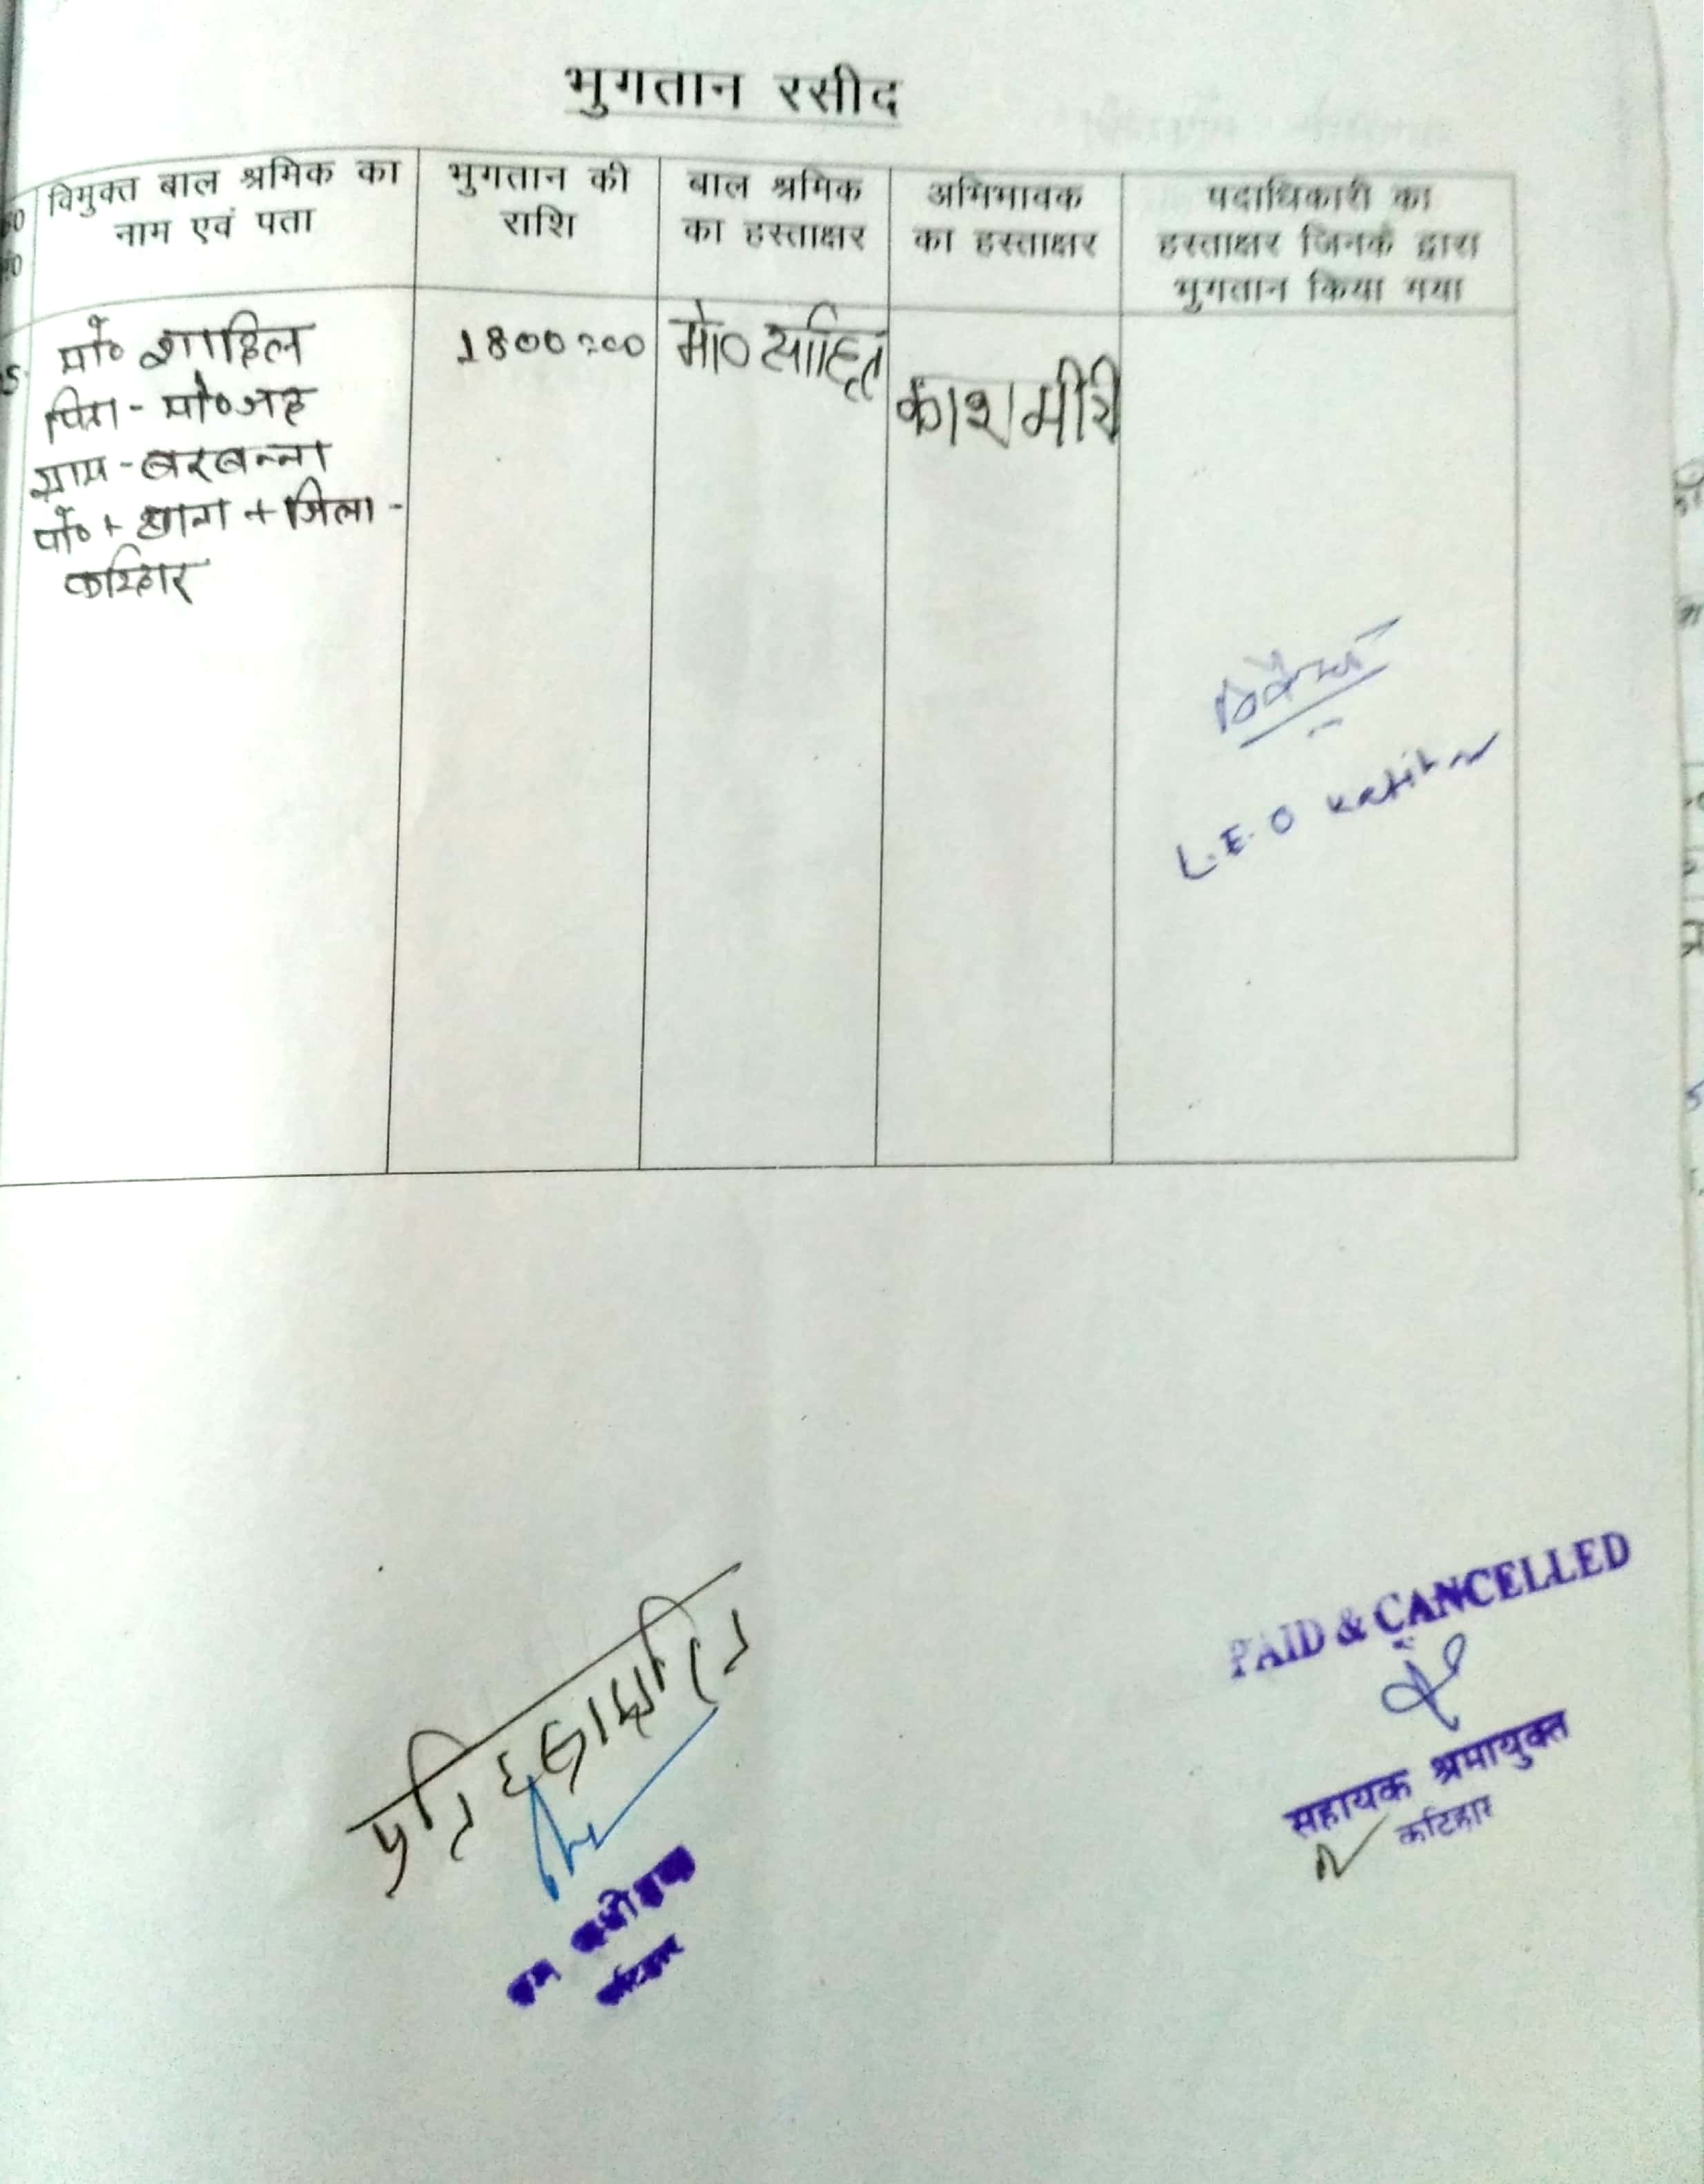 भुगतान रसीद
विमुक्त बाल श्रमिक का
नाम एवं पता
भुगतान की
राशि
बाल श्रमिक
का हस्ताक्षर
अभिभावक
का हस्ताक्षर
पदाधिकारी का
हस्ताक्षर जिनके द्वारा
भुगतान किया गया
मो० शाहिल
पिता - मो०
ग्राम - बरबन्ना
पो० + थाना + जिला -
कटिहार
1800=00
मो० साहिल
काशमीरी
L.E.O Katihar
प्रतिहस्ताक्षरित
कटिहार
PAID & CANCELLED
सहायक श्रमायुक्त
कटिहार